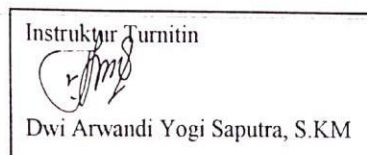 Instruktur Turnitin
Dwi Arwandi Yogi Saputra, S.KM